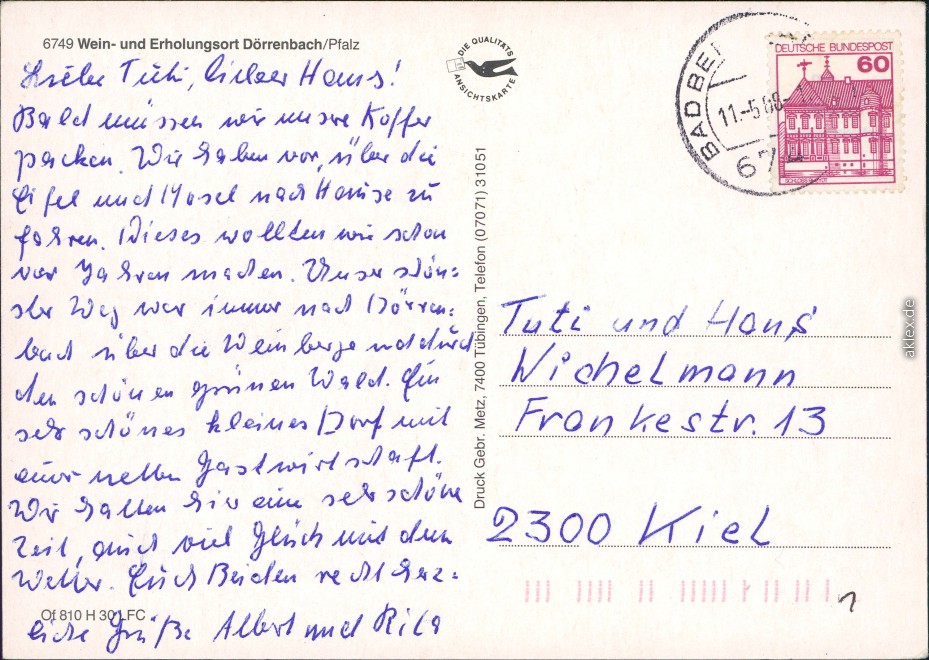 6749 Wein- und Erholungsort Dörrenbach/Pfalz
DIE QUALITÄTS
ANSICHTSKARTE
Liebe Tuti, lieber Hans!
Bald müssen wir unsre Koffer
packen. Wir haben vor, über die
Eifel und Mosel nach Hause zu
fahren. Dieses wollten wir schon
vor Jahren machen. Unser schön=
ster Weg war immer nach Dörren=
bach über die Weinberge und durch
den schönen grünen Wald. Ein
sehr schönes kleines Dorf mit
einer netten Gastwirtschaft.
Wir hatten hier eine sehr schöne
Zeit, auch viel Glück mit dem
Wetter. Euch Beiden recht herz=
liche Grüße Albert und Rita
Of 810 H 30 LFC
Druck Gebr. Metz, 7400 Tübingen, Telefon (07071) 31051
BAD BE
11.-5.88
67
DEUTSCHE BUNDESPOST
60
Tuti und Hans
Wichelmann
Frankestr. 13
2300 Kiel
aklex.de